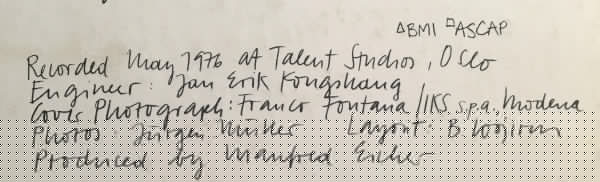 △BMI □ASCAP
Recorded May 1976 at Talent Studios, Oslo
Engineer: Jan Erik Kongshaug
Cover Photograph: Franco Fontana / IKS s.p.a., Modena
Photos: Jürgen Layout: B. Wojirsch
Produced by Manfred Eicher